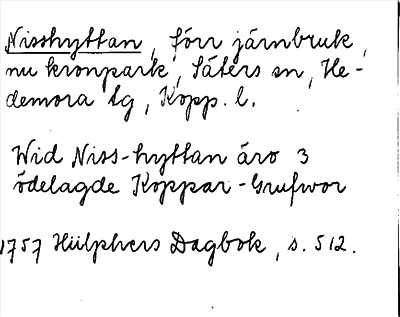 Nisshyttan, förr järnbruk,
nu kronpark, Säters sn, He-
demora tg, Kopp. l.
Wid Niss-hyttan äro 3
ödelagde Koppar-Grufwor
1757 Hülphers Dagbok, s. 512.